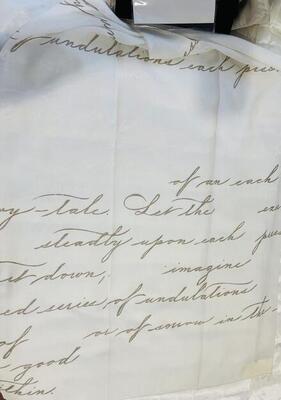 of undulations each pres
of an each
ry-tale. Let the
steadly upon each
it down, imagine
ed series of undulations
of or of sorrow in the
good
thin.